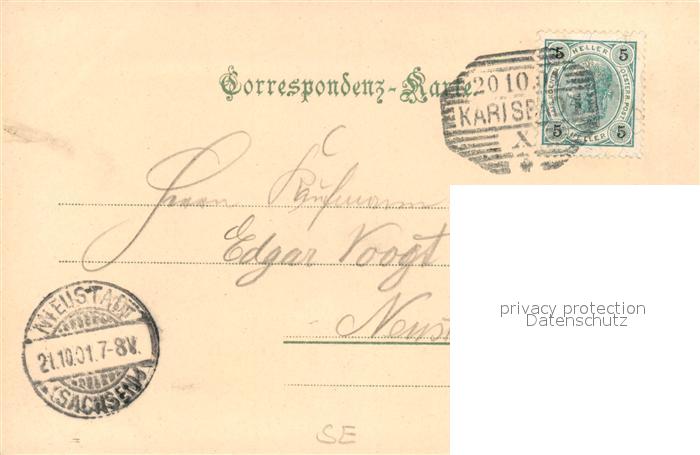 Correspondenz-Karte
5 HELLER 5
5 HELLER 5
20 10
KARLSB
X
Herrn Kaufmann
Edgar Voogt
Neust
NEUSTADT
21.10.01.7-8V.
(SACHSEN)
privacy protection
Datenschutz
SE